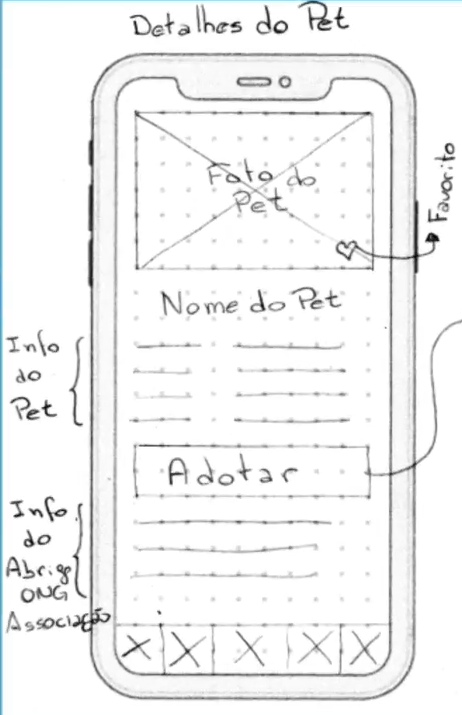 Detalhes do Pet
Foto do
Pet
Favorito
Nome do Pet
Info
do
Pet
Adotar
Info
do
Abrigo
ONG
Associação